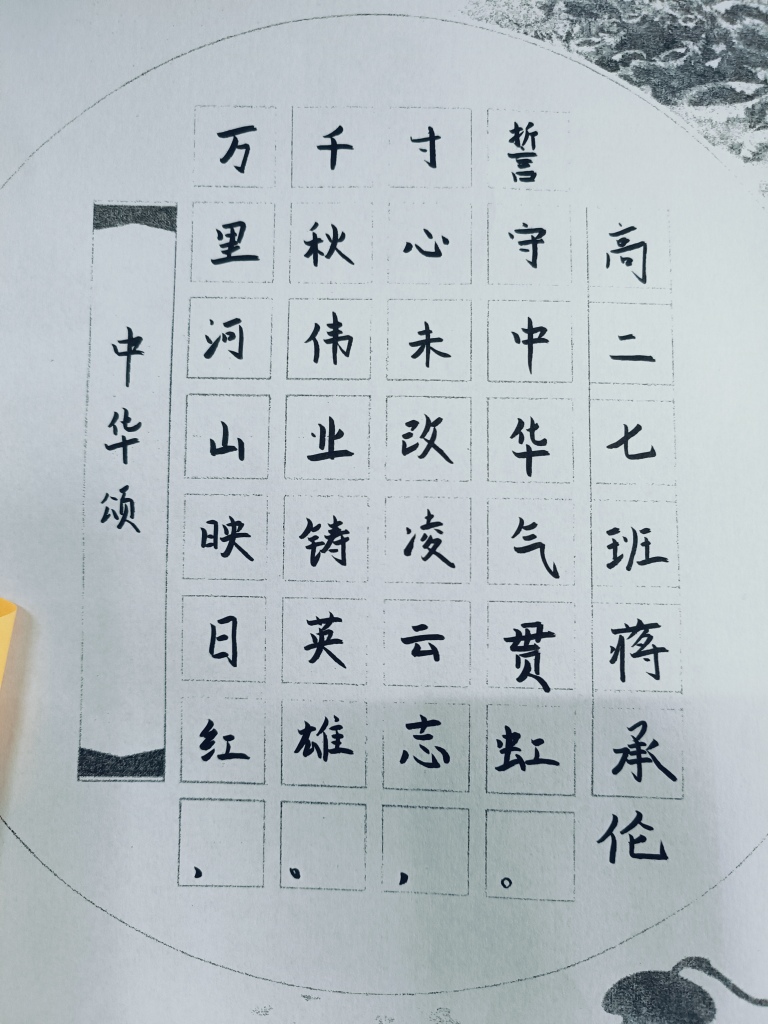 中华颂
万里河山映日红，
千秋伟业铸英雄。
寸心未改凌云志，
誓守中华气贯虹。
高二七班蒋承伦